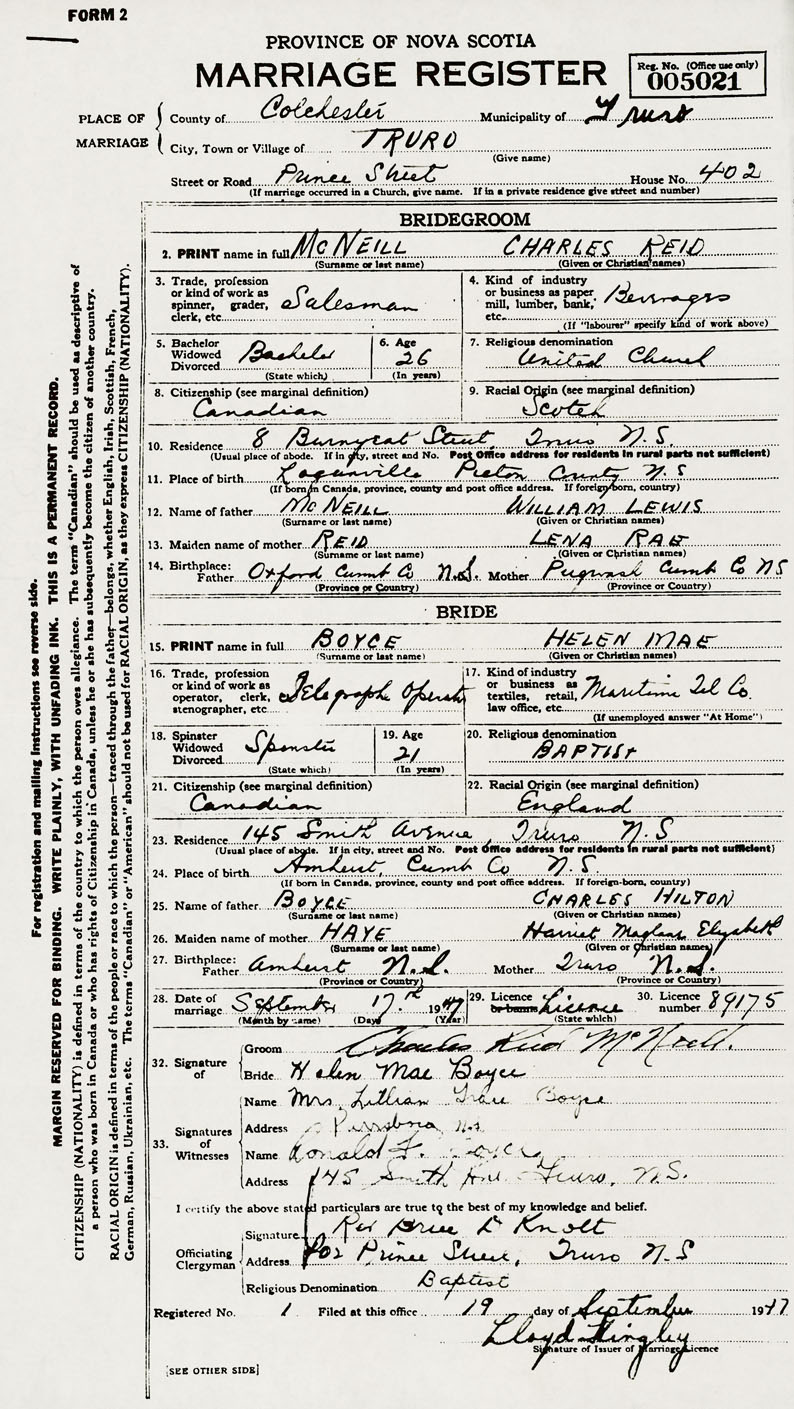 FORM 2
PROVINCE OF NOVA SCOTIA
MARRIAGE REGISTER
Reg. No. (Office use only)
005021
PLACE OF MARRIAGE
County of Colchester Municipality of Truro
City, Town or Village of TRURO
(Give name)
Street or Road Prince Street House No. 402
(If marriage occurred in a Church, give name. If in a private residence give street and number)
BRIDEGROOM
2. PRINT name in full McNEILL CHARLES REID
(Surname or last name) (Given or Christian names)
3. Trade, profession or kind of work as spinner, grader, clerk, etc. Salesman
4. Kind of industry or business as paper mill, lumber, bank, etc. Beverages
(If "labourer" specify kind of work above)
5. Bachelor Widowed Divorced Bachelor
(State which)
6. Age 26
(In years)
7. Religious denomination
United Church
8. Citizenship (see marginal definition)
Canadian
9. Racial Origin (see marginal definition)
Scotch
10. Residence 8 Street, Truro N.S.
(Usual place of abode. If in city, street and No. Post Office address for residents in rural parts not sufficient)
11. Place of birth Loganville Pictou County N.S
(If born in Canada, province, county and post office address. If foreign-born, country)
12. Name of father McNEILL WILLIAM LEWIS
(Surname or last name) (Given or Christian names)
13. Maiden name of mother REID LENA RAE
(Surname or last name) (Given or Christian names)
14. Birthplace: Father Oxford Cumb Co N.S. Mother Pugwash Cumb Co NS
(Province or Country) (Province or Country)
BRIDE
15. PRINT name in full BOYCE HELEN MAE
(Surname or last name) (Given or Christian names)
16. Trade, profession or kind of work as operator, clerk, stenographer, etc Operator
17. Kind of industry or business as textiles, retail, law office, etc. Maritime Tel Co.
(If unemployed answer "At Home")
18. Spinster Widowed Divorced Spinster
(State which)
19. Age 21
(In years)
20. Religious denomination
BAPTIST
21. Citizenship (see marginal definition)
Canadian
22. Racial Origin (see marginal definition)
England
23. Residence 145 Smith Avenue, Truro N.S
(Usual place of abode. If in city, street and No. Post Office address for residents in rural parts not sufficient)
24. Place of birth Amherst, Cumb Co N.S.
(If born in Canada, province, county and post office address. If foreign-born, country)
25. Name of father BOYCE CHARLES HILTON
(Surname or last name) (Given or Christian names)
26. Maiden name of mother HAYE Harriet Elizabeth
(Surname or last name) (Given or Christian names)
27. Birthplace: Father Amherst N.S. Mother Truro N.S.
(Province or Country) (Province or Country)
28. Date of marriage September 17th 1947
(Month by name) (Day) (Year)
29. Licence or banns Licence
(State which)
30. Licence number 89175
32. Signature of
Groom Charles Reid McNeill.
Bride Helen Mae Boyce
33. Signatures of Witnesses
Name Mrs Lillian Grace Boyce
Address Parrsboro, N.S.
Name Donald F. Boyce
Address 145 Smith Ave. Truro, N.S.
I certify the above stated particulars are true to the best of my knowledge and belief.
Officiating Clergyman
Signature Rev Brice D Knott
Address 402 Prince Street, Truro N.S
Religious Denomination Baptist
Registered No. 1 Filed at this office 19 day of September 1947
Lloyd
Signature of Issuer of Marriage Licence
[SEE OTHER SIDE]
For registration and mailing instructions see reverse side.
MARGIN RESERVED FOR BINDING. WRITE PLAINLY, WITH UNFADING INK. THIS IS A PERMANENT RECORD.
CITIZENSHIP (NATIONALITY) is defined in terms of the country to which the person owes allegiance. The term "Canadian" should be used as descriptive of
a person who was born in Canada or who has rights of Citizenship in Canada, unless he or she has subsequently become the citizen of another country.
RACIAL ORIGIN is defined in terms of the people or race to which the person—traced through the father—belongs, whether English, Irish, Scottish, French,
German, Russian, Ukrainian, etc. The terms "Canadian" or "American" should not be used for RACIAL ORIGIN, as they express CITIZENSHIP (NATIONALITY).